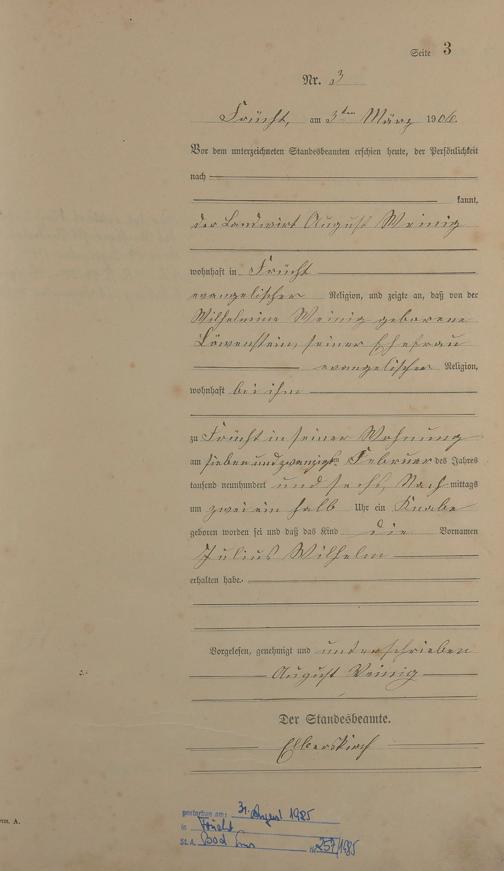 Seite 3
Nr. 3
Frücht, am 3ten März 1906
Vor dem unterzeichneten Standesbeamten erschien heute, der Persönlichkeit
nach
kannt,
der Landwirt August Weinig
wohnhaft in Frücht
evangelischer Religion, und zeigte an, daß von der
Wilhelmine Weinig geborene
Löwenstein, seiner Ehefrau
evangelischer Religion,
wohnhaft bei ihm
zu Frücht in seiner Wohnung
am siebenundzwanzigsten Februar des Jahres
tausend neunhundert und sechs, Nach mittags
um zweieinhalb Uhr ein Knabe
geboren worden sei und daß das Kind die Vornamen
Julius Wilhelm
erhalten habe.
Vorgelesen, genehmigt und unterschrieben
August Weinig
Der Standesbeamte.
Elberskirch
gestorben am: 31. August 1985
in Frücht
St.A. Bad Ems Nr. 257/1985